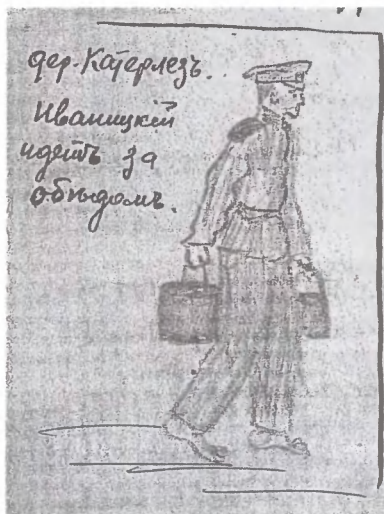 дер. Катерлезъ.
Иваницкій
идетъ за
обѣдомъ.